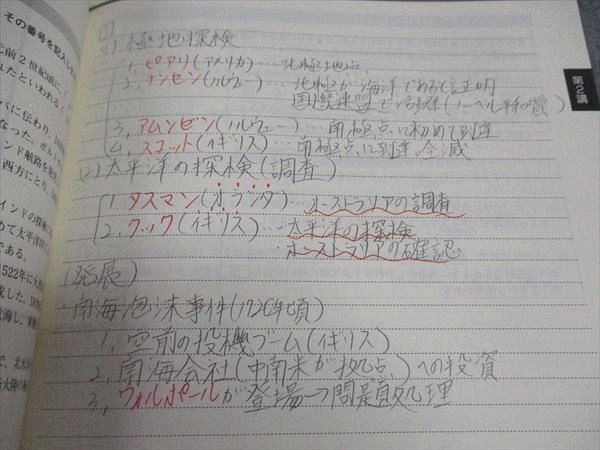 その番号を記入し
元前2世紀頃に,
れたといわれる
バに伝わり,
なった。ポル
インド航路を発
西方にとり,
インドの探検
めて太平洋
である。
1522年に大
成した。
航海し,
で, 北
新大陸の
第2講
(1) 極地探検
1. ピアリ(アメリカ)… 北極地点
2. ナンセン(ノルウェー)… 北極が海洋である証明
国際連盟で活躍(ノーベル平和賞)
3. アムンゼン(ノルウェー)… 南極点に初めて到達
4. スコット(イギリス)… 南極点に到達 全滅
(2) 太平洋の探検(調査)
1. タスマン(オランダ)… オーストラリアの調査
2. クック(イギリス)… 太平洋の探検
・オーストラリアの確認
(発展)
・南海泡沫事件(1720年頃)
1, 空前の投機ブーム(イギリス)
2, 南海会社(中南米が拠点)への投資
3, ウォルポールが登場→問題処理